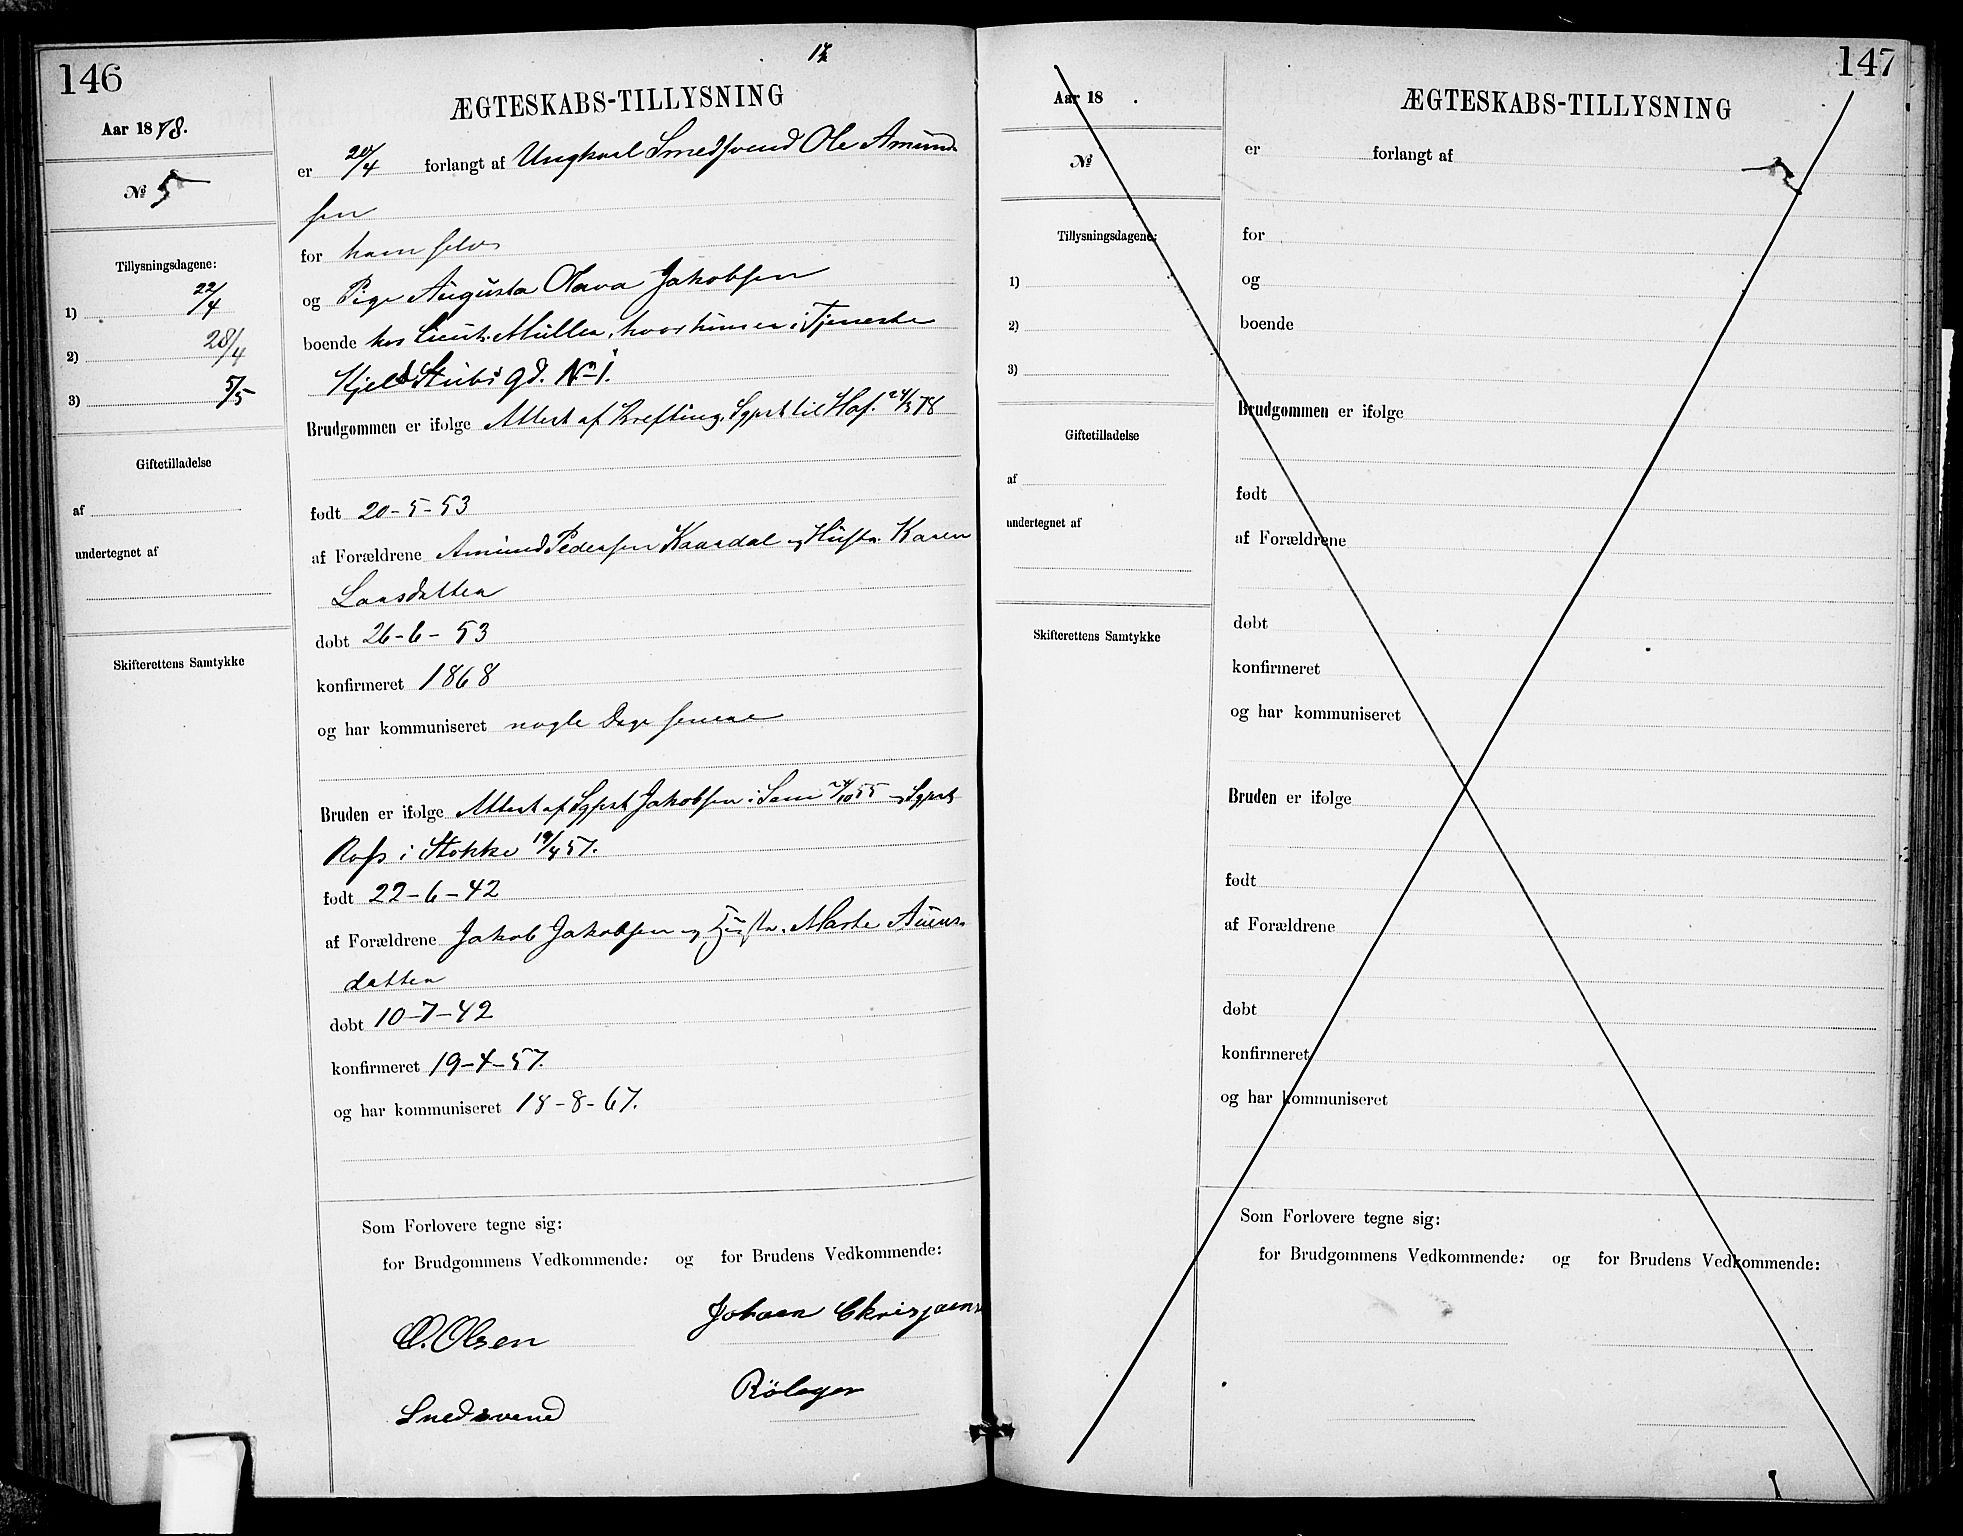 146
17
ÆGTESKABS-TILLYSNING
Aar 1878.
№ 5
er 20/4 forlangt af Ungkarl Smedsvend Ole Amund-
sen
for ham selv
og Pige Augusta Olava Jakobsen
boende hos Lieut. Müller, hvor hun er i Tjeneste
Kjeld Stubs gd. No 1.
Tillysningsdagene:
1) 22/4
2) 28/4
3) 5/5
Giftetilladelse
af
undertegnet af
Skifterettens Samtykke
Brudgommen er ifølge Attest af Krefting, Sgprst til Hof.
født 20-5-53
af Forældrene Amund Pedersen Kaasdal og Hustr. Karen
Larsdatter
døbt 26-6-53
konfirmeret 1868
og har kommuniseret nogle Dage senere
Bruden er ifølge Attest af Sgprst Jakobsen i Sem 24/10 55 og Sgprst
Ross i Stokke 19/4 57.
født 22-6-42
af Forældrene Jakob Jakobsen og Hustr. Marte
datter
døbt 10-7-42
konfirmeret 19-4-57.
og har kommuniseret 18-8-67.
Som Forlovere tegne sig:
for Brudgommens Vedkommende: og for Brudens Vedkommende:
O. Olsen
Smedsvend
147
ÆGTESKABS-TILLYSNING
Aar 18 .
№
er forlangt af
for
og
boende
Tillysningsdagene:
1)
2)
3)
Giftetilladelse
af
undertegnet af
Skifterettens Samtykke
Brudgommen er ifølge
født
af Forældrene
døbt
konfirmeret
og har kommuniseret
Bruden er ifølge
født
af Forældrene
døbt
konfirmeret
og har kommuniseret
Som Forlovere tegne sig:
for Brudgommens Vedkommende: og for Brudens Vedkommende: